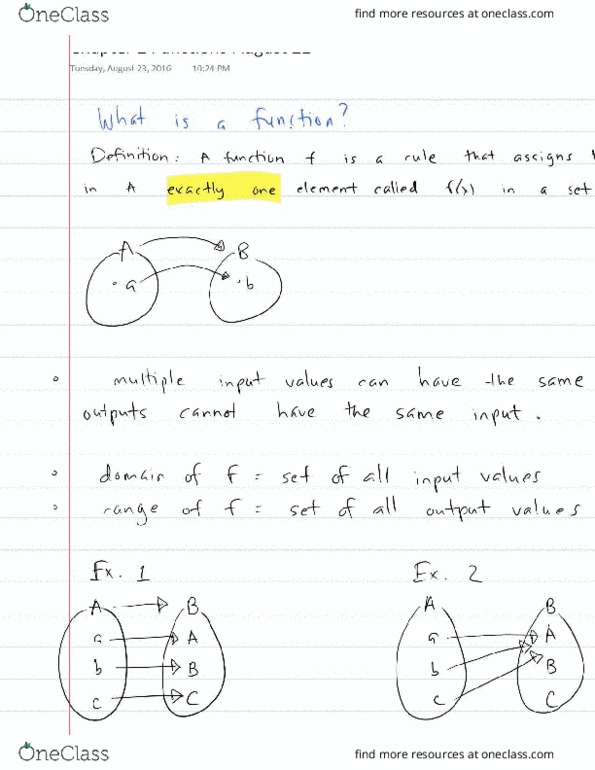 OneClass
find more resources at oneclass.com
Tuesday, August 23, 2016 10:24 PM
What is a function?
Definition: A function f is a rule that ascigns
in A exactly one element called f(x) in a set
A B
a b
multiple input values can have the same
outputs cannot have the same input.
domain of f = set of all input values
range of f = set of all output values
Ex. 1 Ex. 2
A B A B
a A a A
b B b B
c C c C
OneClass
find more resources at oneclass.com